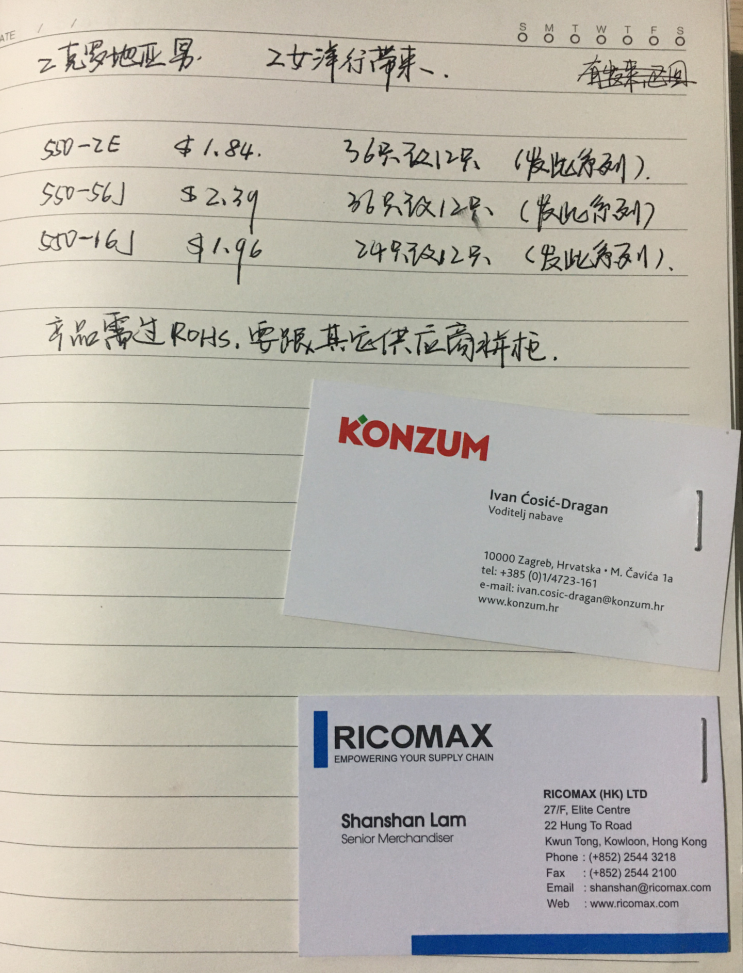 ATE / /
S M T W T F S
2克罗地亚男. 2女洋行带来、.
550-2E $1.84. 36只改12只 (发此系列).
550-56J $2.39 36只改12只 (发此系列)
550-16J $1.96 24只改12只 (发此系列).
产品需过ROHS,要跟其它供应商拼柜.
KONZUM
Ivan Ćosić-Dragan
Voditelj nabave
10000 Zagreb, Hrvatska • M. Čavića 1a
tel: +385 (0)1/4723-161
e-mail: ivan.cosic-dragan@konzum.hr
www.konzum.hr
RICOMAX
EMPOWERING YOUR SUPPLY CHAIN
Shanshan Lam
Senior Merchandiser
RICOMAX (HK) LTD
27/F, Elite Centre
22 Hung To Road
Kwun Tong, Kowloon, Hong Kong
Phone : (+852) 2544 3218
Fax : (+852) 2544 2100
Email : shanshan@ricomax.com
Web : www.ricomax.com